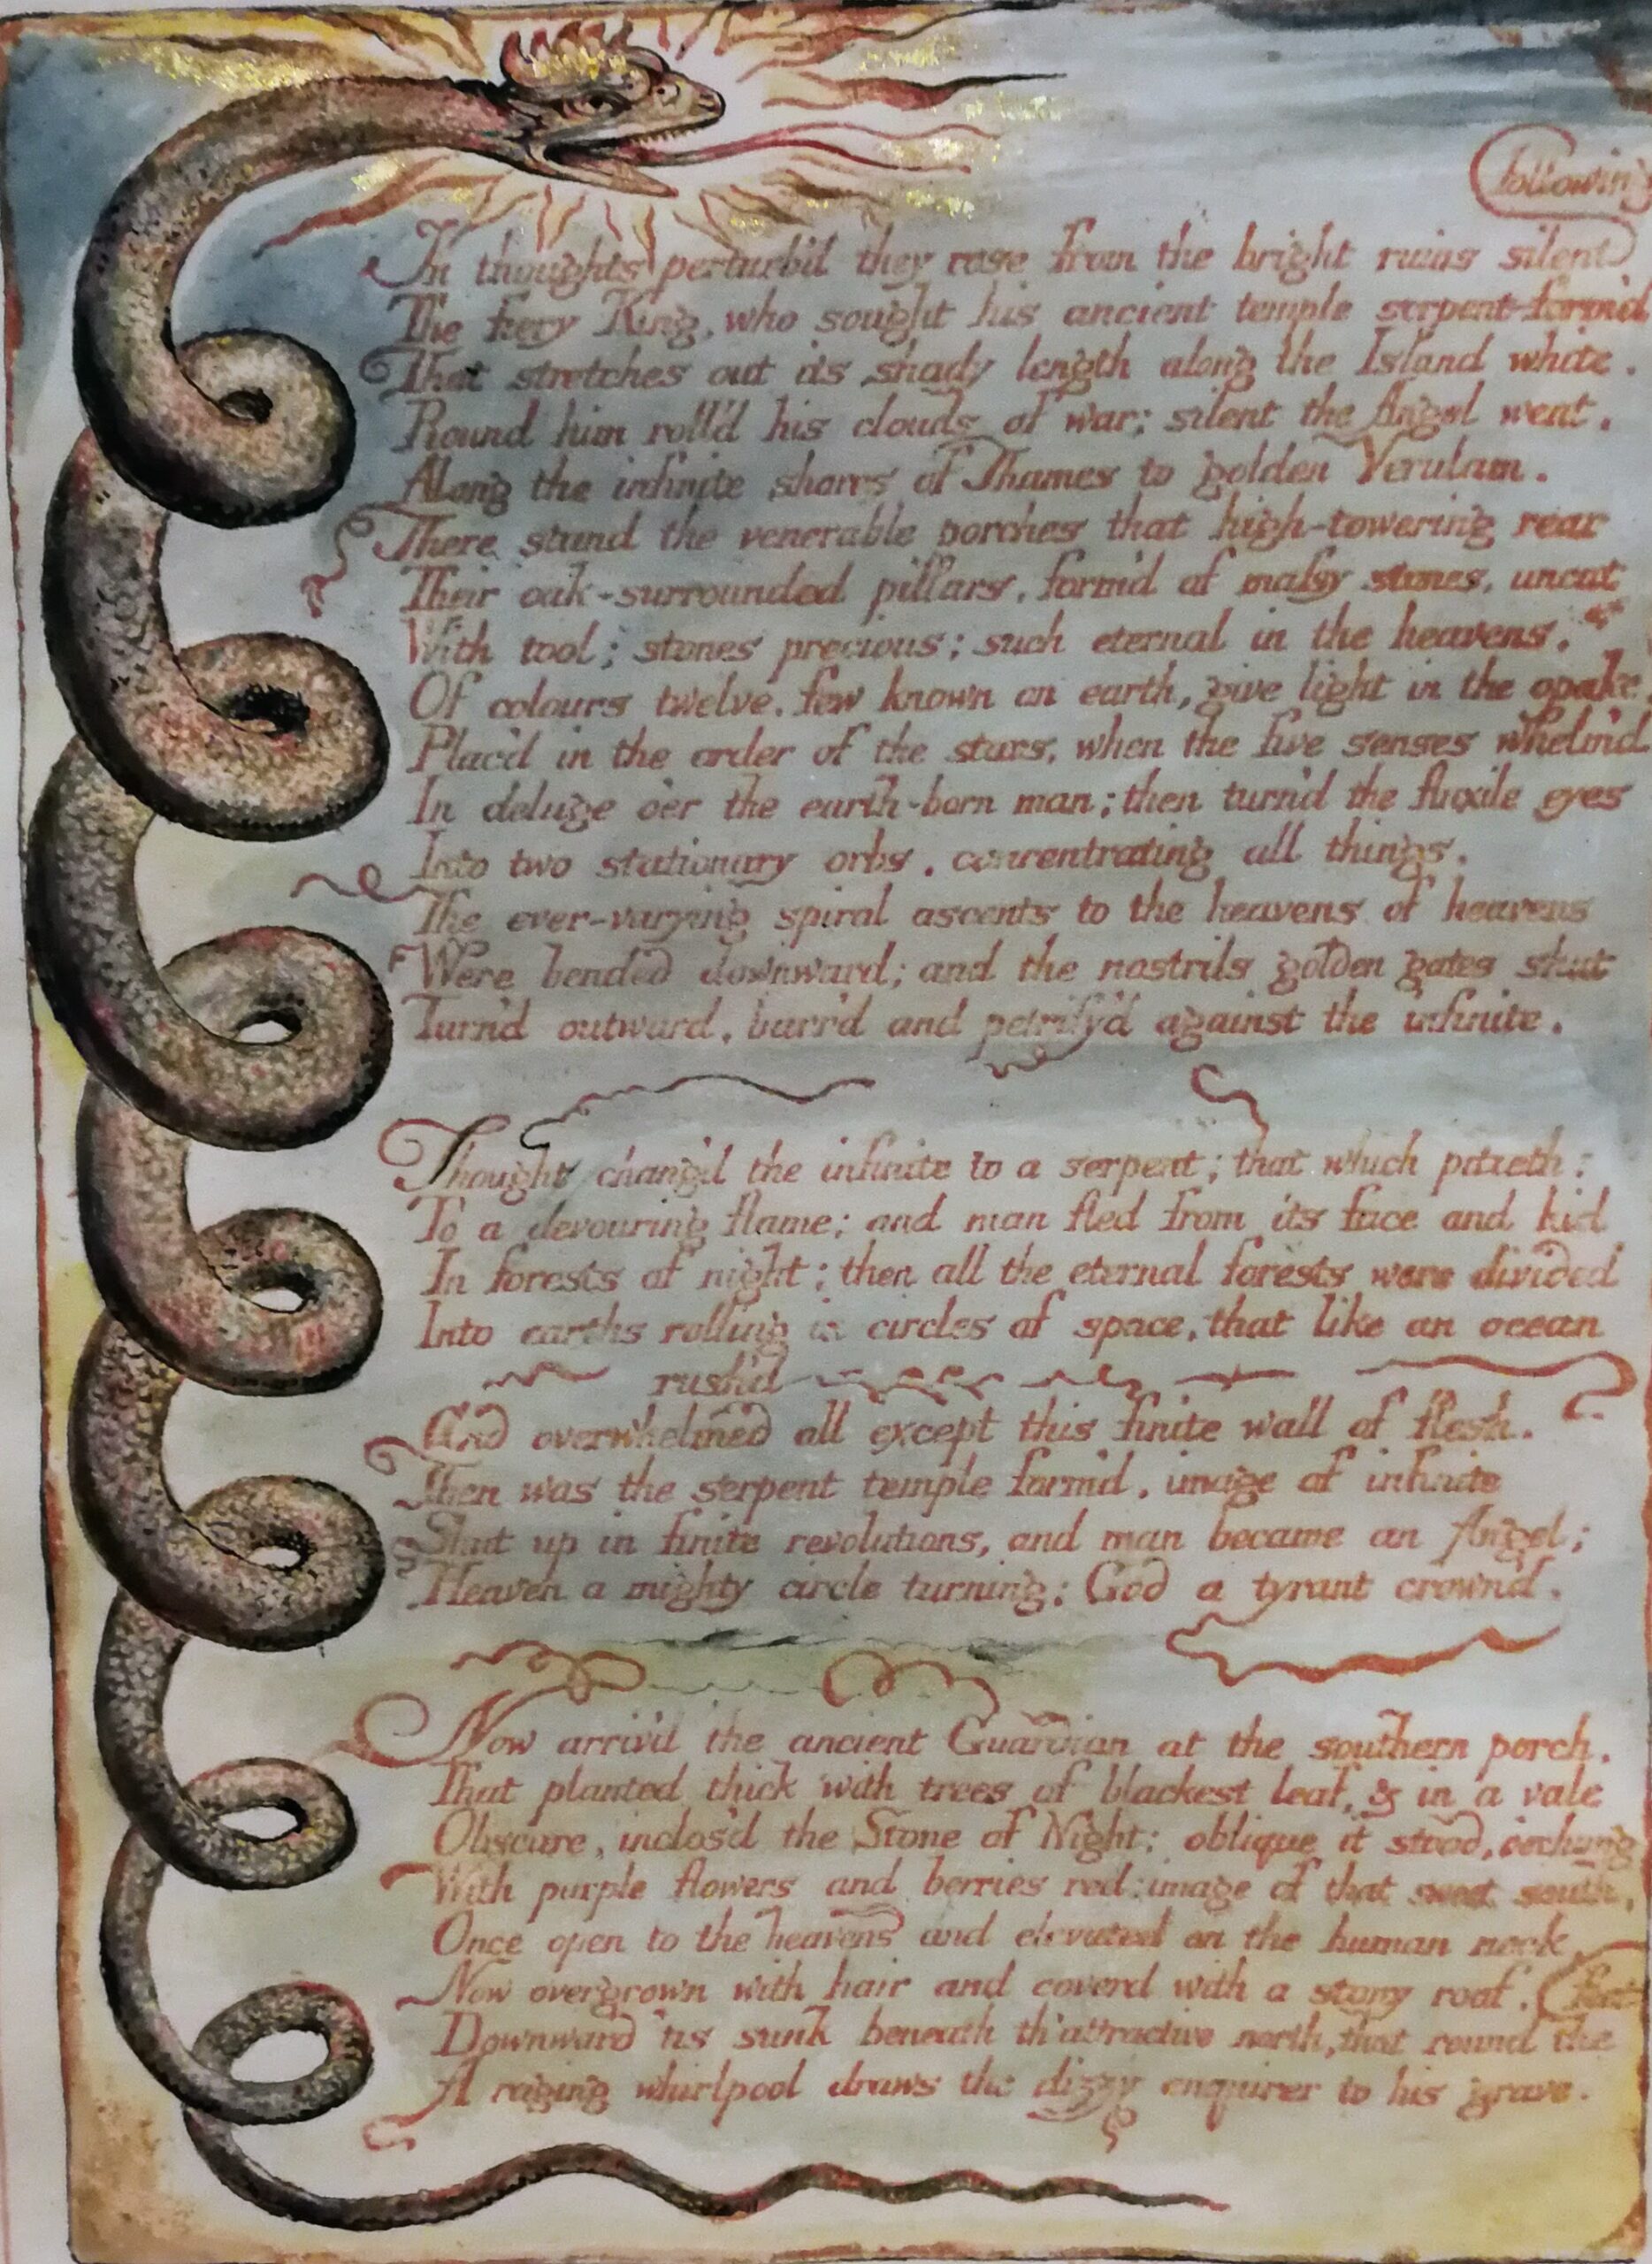 following
In thoughts perturb'd they rose from the bright ruins silent
The fiery King, who sought his ancient temple serpent-form'd
That stretches out its shady length along the Island white.
Round him roll'd his clouds of war; silent the Angel went,
Along the infinite shores of Thames to golden Verulam.
There stand the venerable porches that high-towering rear
Their oak-surrounded pillars, form'd of massy stones, uncut
With tool; stones precious; such eternal in the heavens,
Of colours twelve, few known on earth, give light in the opake
Plac'd in the order of the stars, when the five senses whelm'd
In deluge o'er the earth-born man; then turn'd the fluxile eyes
Into two stationary orbs, concentrating all things.
The ever-varying spiral ascents to the heavens of heavens
Were bended downward; and the nostrils golden gates shut
Turn'd outward, barr'd and petrify'd against the infinite.
Thought chang'd the infinite to a serpent; that which pitieth:
To a devouring flame; and man fled from its face and hid
In forests of night; then all the eternal forests were divided
Into earths rolling in circles of space, that like an ocean
rush'd
And overwhelmed all except this finite wall of flesh.
Then was the serpent temple form'd, image of infinite
Shut up in finite revolutions, and man became an Angel;
Heaven a mighty circle turning; God a tyrant crown'd.
Now arriv'd the ancient Guardian at the southern porch,
That planted thick with trees of blackest leaf, & in a vale
Obscure, inclos'd the Stone of Night; oblique it stood, o'erhung
With purple flowers and berries red; image of that sweet south,
Once open to the heavens and elevated on the human neck,
Now overgrown with hair and coverd with a stony roof,
feet
Downward 'tis sunk beneath th' attractive north, that round the
A raging whirlpool draws the dizzy enquirer to his grave.